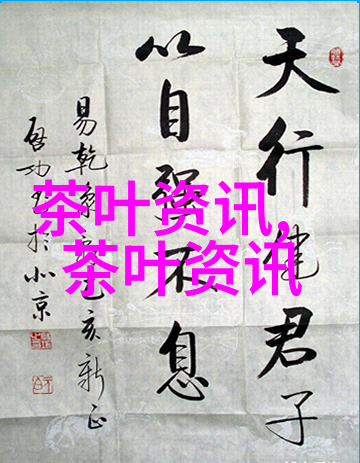 天行健君子
以自强不息
易乾象亥新正
启功於北京
茶叶资讯,
茶叶资讯